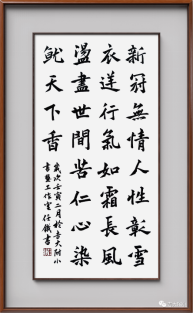 新冠無情人性彰雪
衣逆行氣如霜長風
盪盡世間苦仁心染
就天下香
歲次壬寅二月於吉大附小
書藝工作室